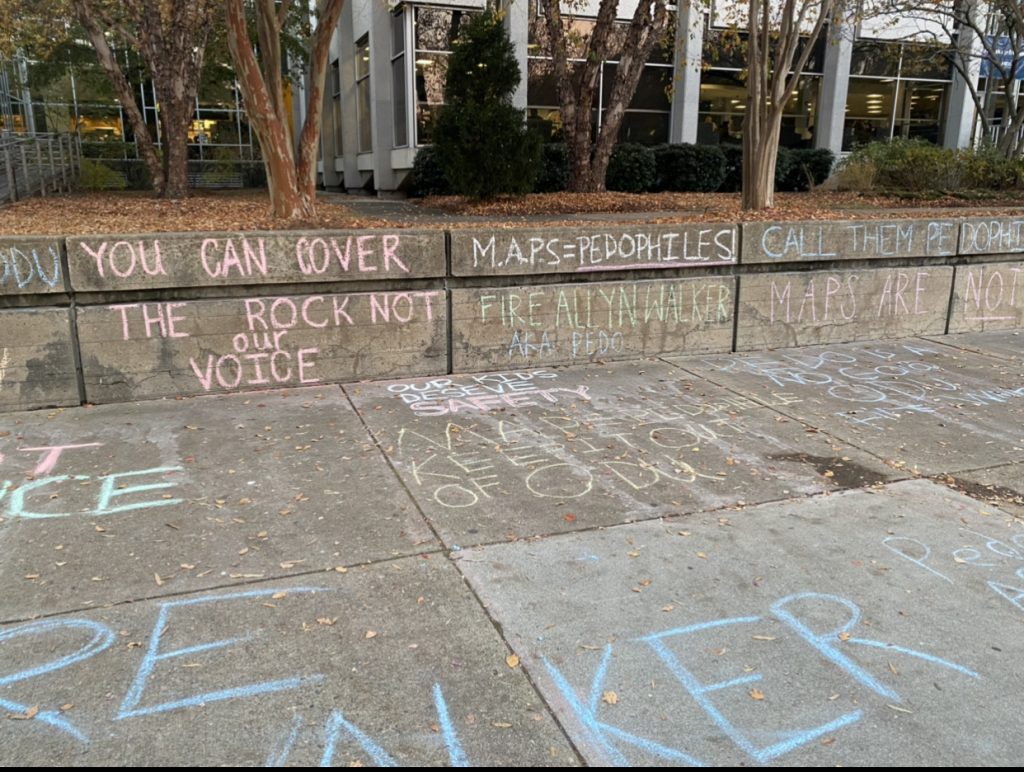 ODU
YOU CAN COVER
THE ROCK NOT
our
VOICE
M.A.P.S=PEDOPHILES!
FIRE ALLYN WALKER
AKA PEDO
CALL THEM PEDOPHI
MAPS ARE NOT
OUR KIDS
DESEVE
SAFETY
KEEP IT OUT
OF ODU
NO GOOD
ODU
ST
ICE
RE
KER
Pedo